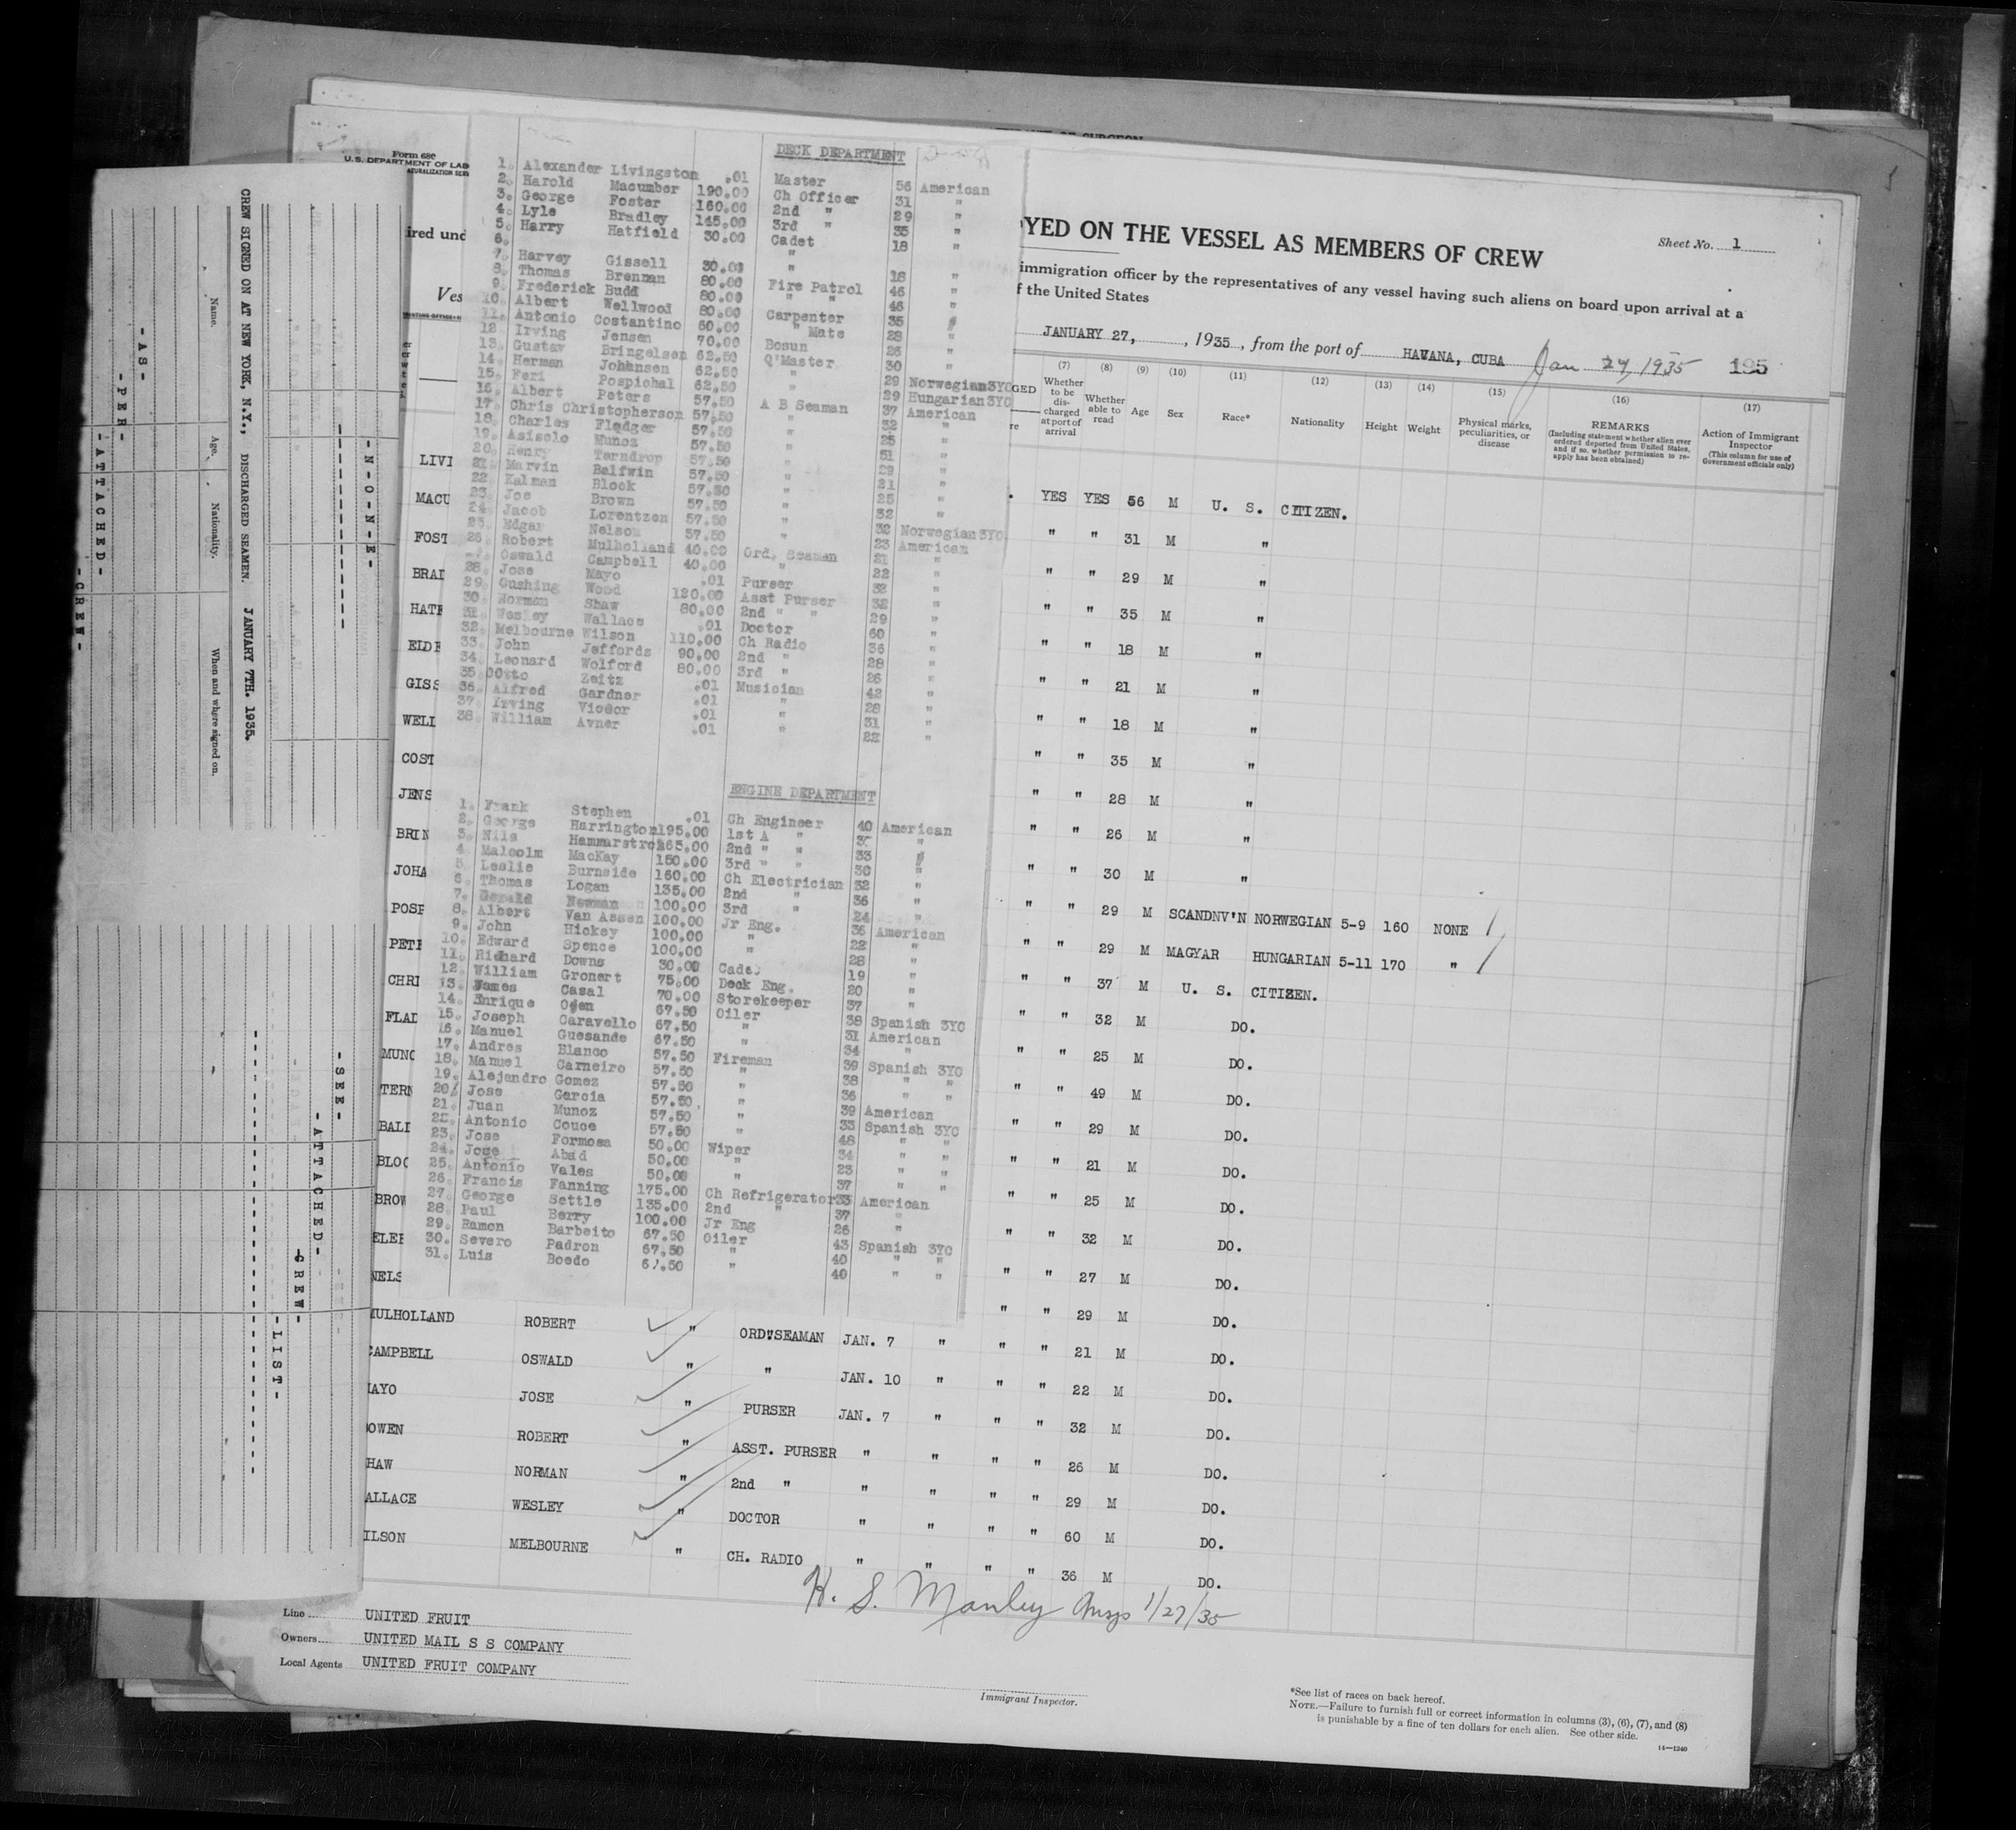 Form 680
U. S. DEPARTMENT OF LAB
ATURALIZATION SERV
ired und
Ves
CREW SIGNED ON AT NEW YORK, N.Y., DISCHARGED SEAMEN. JANUARY 7TH. 1935.
Name. Age. Nationality. When and where signed on.
-AS-
-PER-
-ATTACHED-
-CREW-
-N-O-N-E-
-SEE-
-ATTACHED-
-CREW-
-LIST-
DECK DEPARTMENT
1. Alexander Livingston .01 Master 56 American
2. Harold Macumber 190.00 Ch Officer 31 "
3. George Foster 160.00 2nd " 29 "
4. Lyle Bradley 145.00 3rd " 35 "
5. Harry Hatfield 30.00 Cadet 18 "
6. "
7. Harvey Gissell 30.00 " 18 "
8. Thomas Brennan 80.00 Fire Patrol 46 "
9. Frederick Budd 80.00 " " 46 "
10. Albert Wellwood 80.00 Carpenter 35 "
11. Antonio Costantino 60.00 " Mate 28 "
12. Irving Jensen 70.00 Bosun 26 "
13. Gustav Bringelsen 62.50 Q'Master 30 "
14. Herman Johansen 62.50 " 29 Norwegian3YC
15. Feri Pospichal 62.50 " 29 Hungarian3YC
16. Albert Peters 57.50 A B Seaman 37 American
17. Chris Christopherson 57.50 " 32 "
18. Charles Fladger 57.50 " 25 "
19. Asisolo Munoz 57.50 " 51 "
20. Henry Terndrop 57.50 " 29 "
21. Marvin Balfwin 57.50 " 21 "
22. Kalman Block 57.50 " 25 "
23. Joe Brown 57.50 " 32 "
24. Jacob Lorentzen 57.50 " 32 Norwegian3YC
25. Edgar Nelson 57.50 " 23 American
26. Robert Mulholland 40.00 Ord. Seaman 21 "
Oswald Campbell 40.00 " 22 "
28. Jose Mayo .01 Purser 32 "
29. Cushing Wood 120.00 Asst Purser 32 "
30. Norman Shaw 80.00 2nd " " 29 "
31. Wesley Wallace .01 Doctor 60 "
32. Melbourne Wilson 110.00 Ch Radio 36 "
33. John Jeffords 90.00 2nd " 28 "
34. Leonard Wolford 80.00 3rd " 26 "
35. Otto Zeitz .01 Musician 42 "
36. Alfred Gardner .01 " 28 "
37. Irving Viedor .01 " 31 "
38. William Avner .01 " 22 "
ENGINE DEPARTMENT
1. Frank Stephen .01 Ch Engineer 40 American
2. George Harrington 195.00 1st A " "
3. Nils Hammarstrom 165.00 2nd " " 33 "
4. Malcolm MacKay 150.00 3rd " " 30 "
5. Leslie Burnside 160.00 Ch Electrician 32 "
6. Thomas Logan 135.00 2nd " 36 "
7. Gerald Newman 100.00 3rd " 24 "
8. Albert Van Assen 100.00 Jr Eng. 36 American
9. John Hickey 100.00 " 22 "
10. Edward Spence 100.00 " 28 "
11. Richard Downs 30.00 Cadet 19 "
12. William Gronert 75.00 Deck Eng. 20 "
13. James Casal 70.00 Storekeeper 37 "
14. Enrique Ojen 67.50 Oiler 38 Spanish 3YC
15. Joseph Caravello 67.50 " 31 American
16. Manuel Guesande 67.50 " 34 "
17. Andres Blanco 57.50 Fireman 39 Spanish 3YC
18. Manuel Carneiro 57.50 " 38 " "
19. Alejandro Gomez 57.50 " 36 " "
20. Jose Garcia 57.50 " 39 American
21. Juan Munoz 57.50 " 33 Spanish 3YC
22. Antonio Couce 57.50 " 48 " "
23. Jose Formosa 50.00 Wiper 34 " "
24. Jose Abad 50.00 " 23 " "
25. Antonio Vales 50.00 " 37 " "
26. Francis Fanning 175.00 Ch Refrigerator 33 American
27. George Settle 135.00 2nd " 37 "
28. Paul Berry 100.00 Jr Eng 26 "
29. Ramon Barbeito 67.50 Oiler 43 Spanish 3YC
30. Severo Padron 67.50 " 40 " "
31. Luis Boedo 67.50 " 40 " "
YED ON THE VESSEL AS MEMBERS OF CREW
Sheet No. 1
immigration officer by the representatives of any vessel having such aliens on board upon arrival at a
f the United States
JANUARY 27, , 1935, from the port of HAVANA, CUBA Jan 27, 1935 195
(7) (8) (9) (10) (11) (12) (13) (14) (15) (16) (17)
GED Whether to be discharged at port of arrival Whether able to read Age Sex Race* Nationality Height Weight Physical marks, peculiarities, or disease REMARKS (Including statement whether alien ever ordered deported from United States, and if so, whether permission to reapply has been obtained) Action of Immigrant Inspector (This column for use of Government officials only)
LIVI YES YES 56 M U. S. CITIZEN.
MACU " " 31 M "
FOST " " 29 M "
BRAD " " 35 M "
HATF " " 18 M "
ELDE " " 21 M "
GISS " " 18 M "
WELL " " 35 M "
COST " " 28 M "
JENS " " 26 M "
BRIN " " 30 M "
JOHA " " 29 M SCANDNV'N NORWEGIAN 5-9 160 NONE
POSP " " 29 M MAGYAR HUNGARIAN 5-11 170 "
PETE " " 37 M U. S. CITIZEN.
CHRI " " 32 M DO.
FLAD " " 25 M DO.
MUNO " " 49 M DO.
TERN " " 29 M DO.
BALD " " 21 M DO.
BLOC " " 25 M DO.
BROW " " 32 M DO.
" " 27 M DO.
NELS " " 29 M DO.
MULHOLLAND ROBERT " ORD.SEAMAN JAN. 7 " " " 21 M DO.
CAMPBELL OSWALD " " JAN. 10 " " " 22 M DO.
MAYO JOSE " PURSER JAN. 7 " " " 32 M DO.
OWEN ROBERT " ASST. PURSER " " " " 26 M DO.
HAW NORMAN " 2nd " " " " " 29 M DO.
ALLACE WESLEY " DOCTOR " " " " 60 M DO.
ILSON MELBOURNE " CH. RADIO " " " " 36 M DO.
H. S. Manley Insp 1/27/35
Line UNITED FRUIT
Owners UNITED MAIL S S COMPANY
Local Agents UNITED FRUIT COMPANY
Immigrant Inspector.
*See list of races on back hereof.
NOTE.—Failure to furnish full or correct information in columns (3), (6), (7), and (8)
is punishable by a fine of ten dollars for each alien. See other side.
14—1240